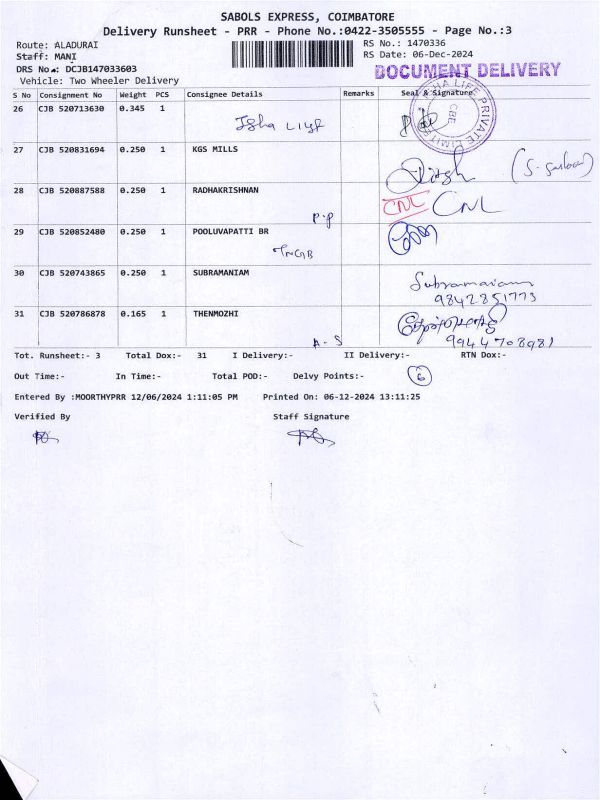 SABOLS EXPRESS, COIMBATORE
Delivery Runsheet - PRR - Phone No.:0422-3505555 - Page No.:3
Route: ALADURAI
RS No.: 1470336
Staff: MANI
RS Date: 06-Dec-2024
DRS No.: DCJB147033603
DOCUMENT DELIVERY
Vehicle: Two Wheeler Delivery
S No Consignment No Weight PCS Consignee Details Remarks Seal & Signature
26 CJB 520713630 0.345 1
27 CJB 520831694 0.250 1 KGS MILLS
28 CJB 520887588 0.250 1 RADHAKRISHNAN
P.P
CNL CNL
29 CJB 520852480 0.250 1 POOLUVAPATTI BR
TNGB
30 CJB 520743865 0.250 1 SUBRAMANIAM
Subramaniam
9842851773
31 CJB 520786878 0.165 1 THENMOZHI
A-S
9944708981
Tot. Runsheet:- 3 Total Dox:- 31 I Delivery:- II Delivery:- RTN Dox:-
Out Time:- In Time:- Total POD:- Delvy Points:- 6
Entered By :MOORTHYPRR 12/06/2024 1:11:05 PM Printed On: 06-12-2024 13:11:25
Verified By Staff Signature